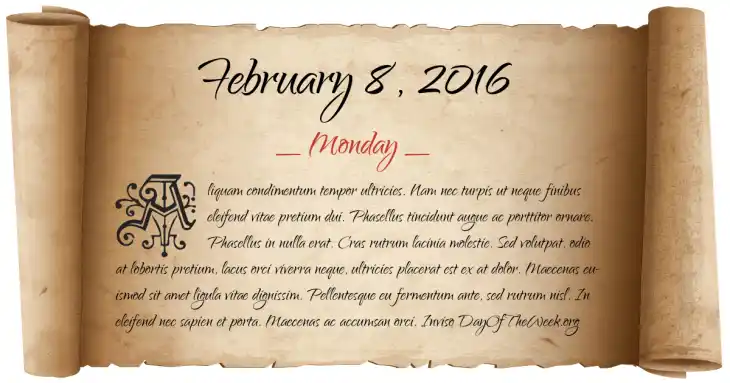 February 8, 2016
_ Monday _
Aliquam condimentum tempor ultricies. Nam nec turpis ut neque finibus
eleifend vitae pretium dui. Phasellus tincidunt augue ac porttitor ornare.
Phasellus in nulla erat. Cras rutrum lacinia molestie. Sed volutpat, odio
at lobortis pretium, lacus orci viverra neque, ultricies placerat est ex at dolor. Maecenas eu-
ismod sit amet ligula vitae dignissim. Pellentesque eu fermentum ante, sed rutrum nisl. In
eleifend nec sapien et porta. Maecenas ac accumsan orci. Inviso DayOfTheWeek.org